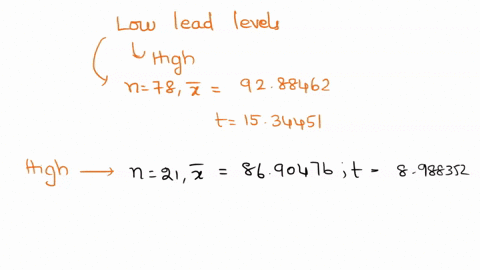 Low lead levels
High
n=78, x̄ = 92.88462
t=15.34451
High → n=21, x̄ = 86.90476 ; t = 8.988352